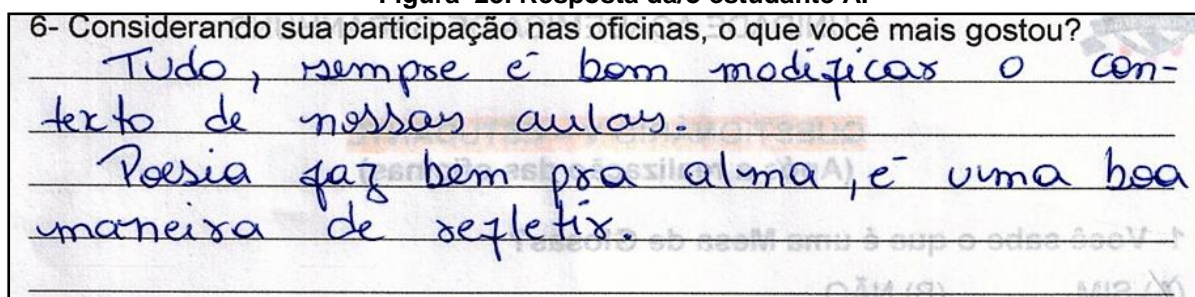 6- Considerando sua participação nas oficinas, o que você mais gostou?
Tudo, sempre é bom modificar o con-
texto de nossas aulas.
Poesia faz bem pra alma, é uma boa
maneira de refletir.